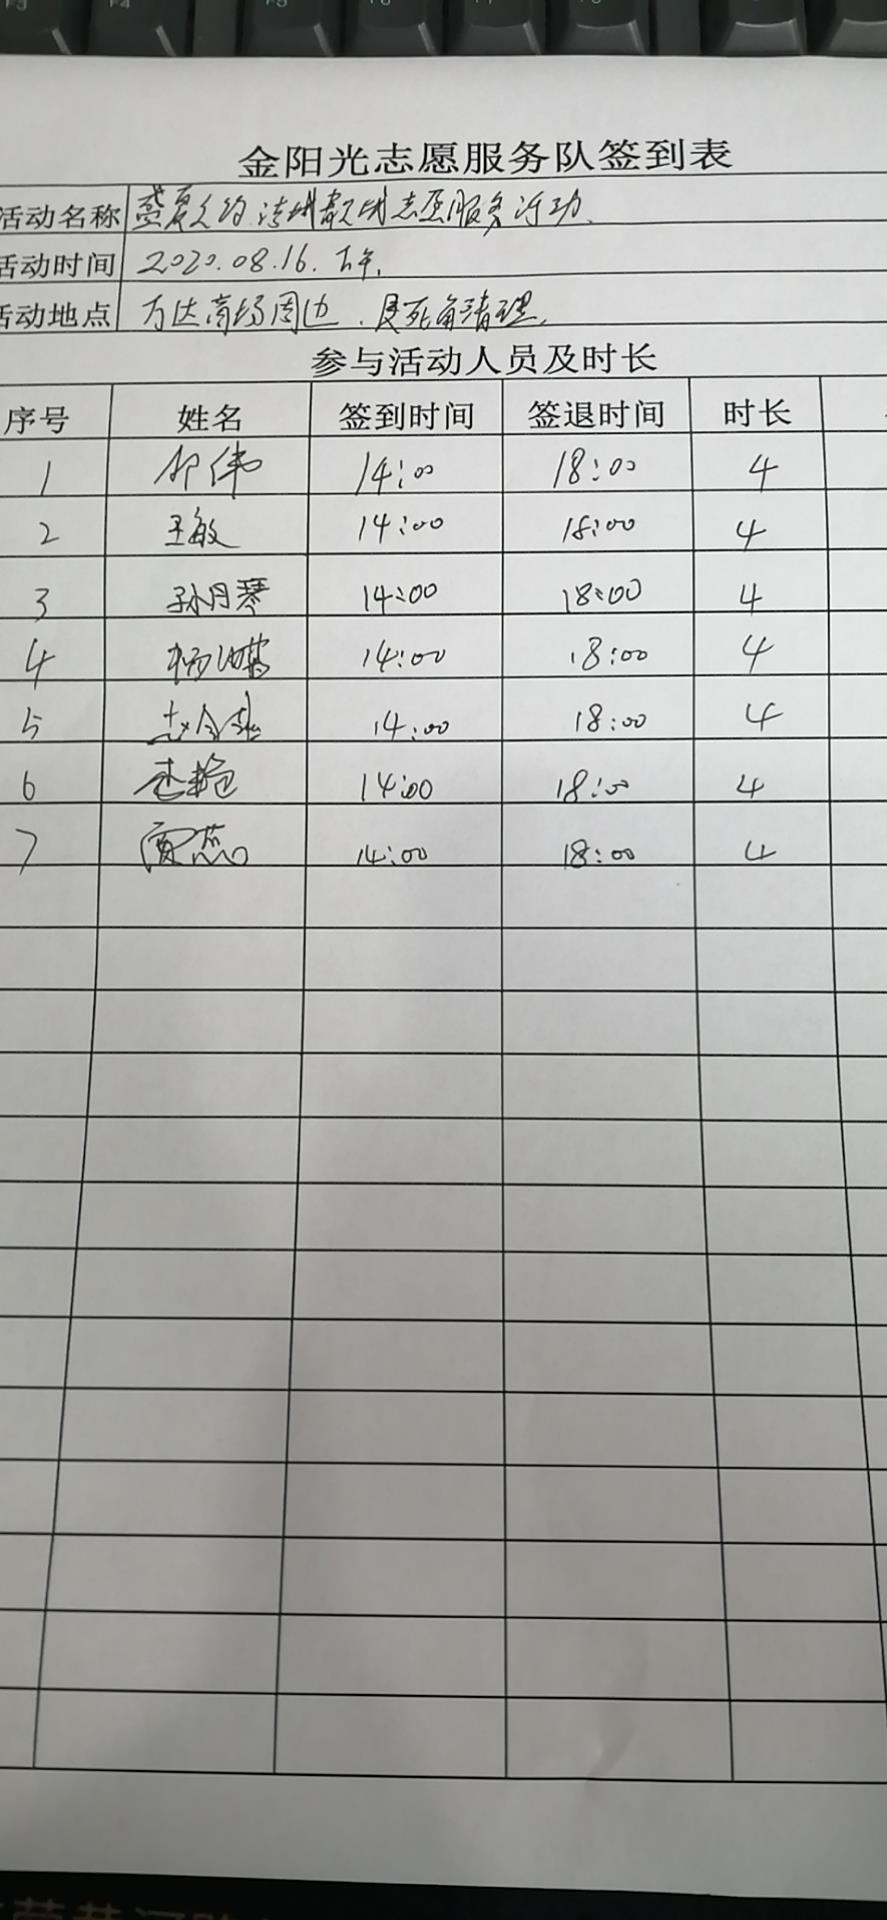 金阳光志愿服务队签到表
活动名称 盛夏之约 清洁家园志愿服务活动
活动时间 2020.08.16. 下午.
活动地点 万达商场周边. 死角清理.
参与活动人员及时长
序号 姓名 签到时间 签退时间 时长
1 伟 14:00 18:00 4
2 王敏 14:00 18:00 4
3 孙月琴 14:00 18:00 4
4 杨 14:00 18:00 4
5 赵 14:00 18:00 4
6 李艳 14:00 18:00 4
7 贾蕊 14:00 18:00 4